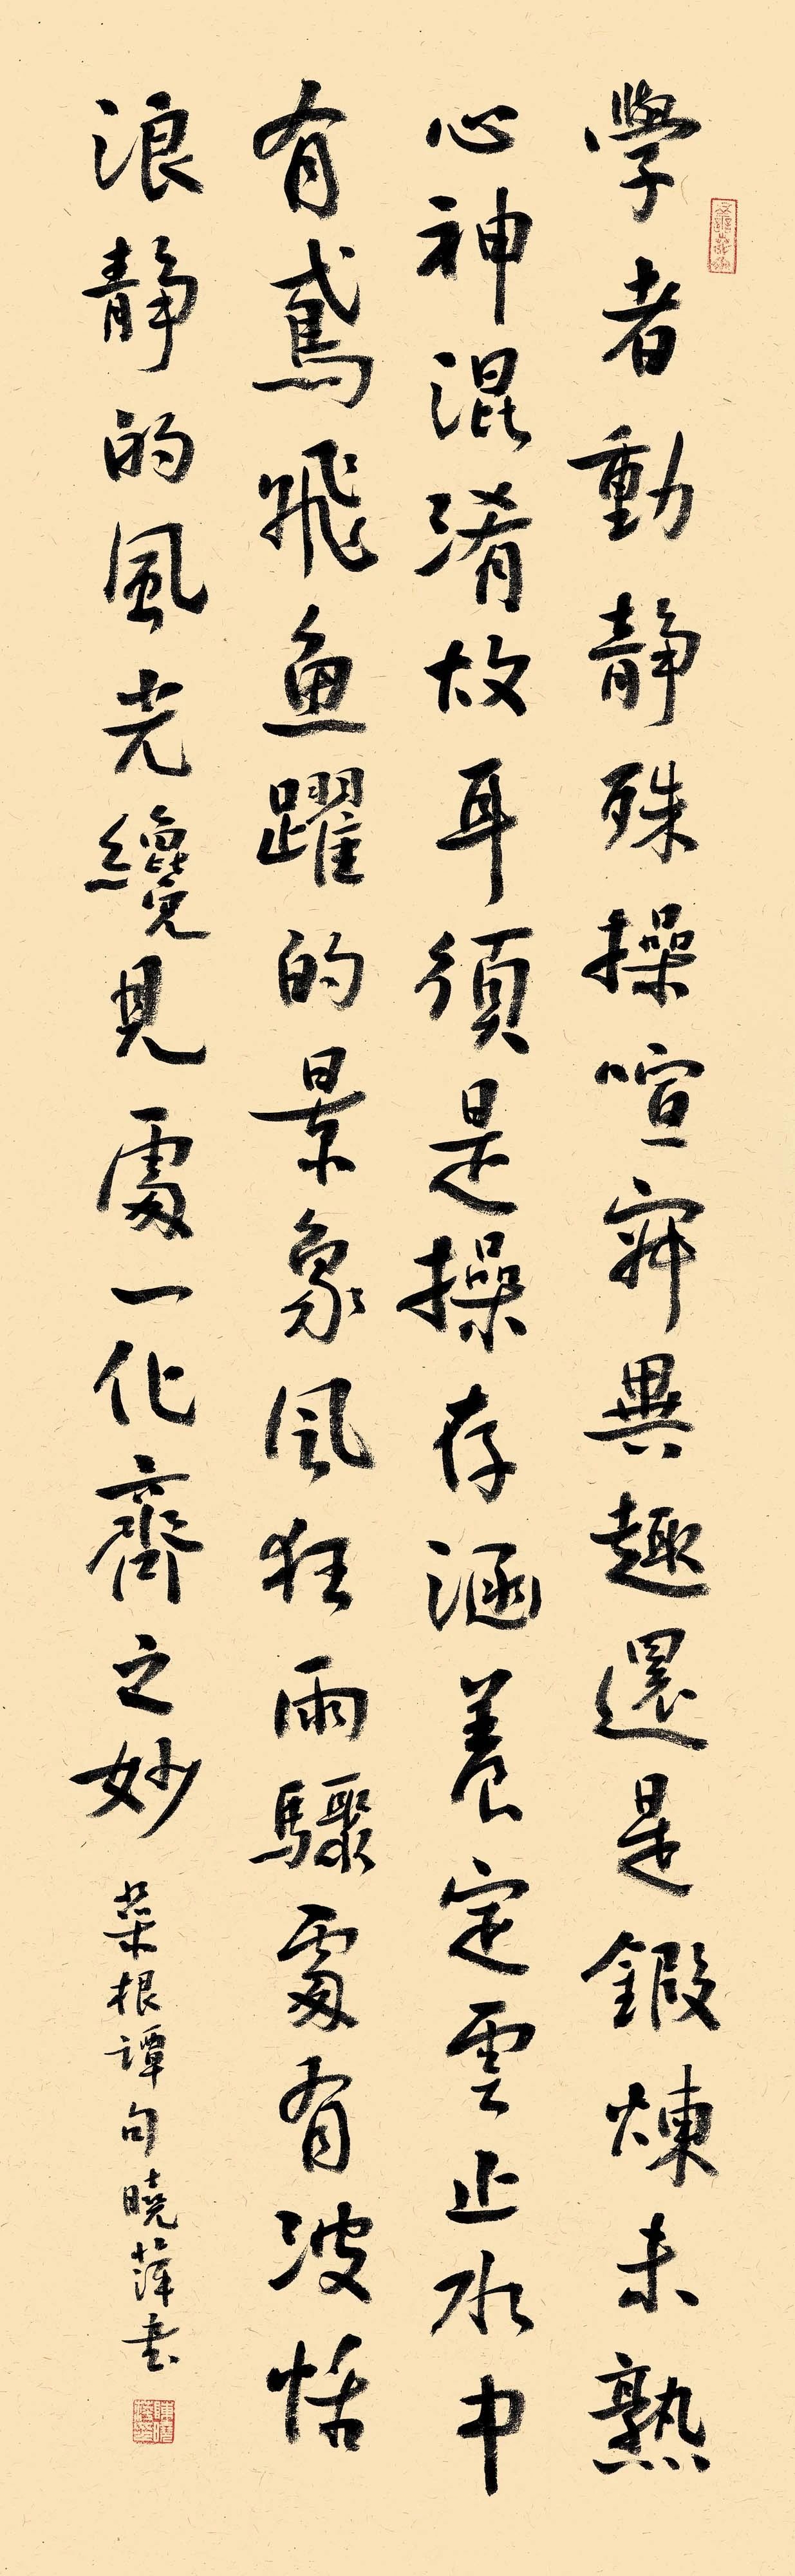 學者動靜殊操喧寂異趣還是鍛煉未熟
心神混淆故耳須是操存涵養定雲止水中
有鳶飛魚躍的景象風狂雨驟處有波恬
浪靜的風光纔見處一化齊之妙
菜根譚句曉萍书